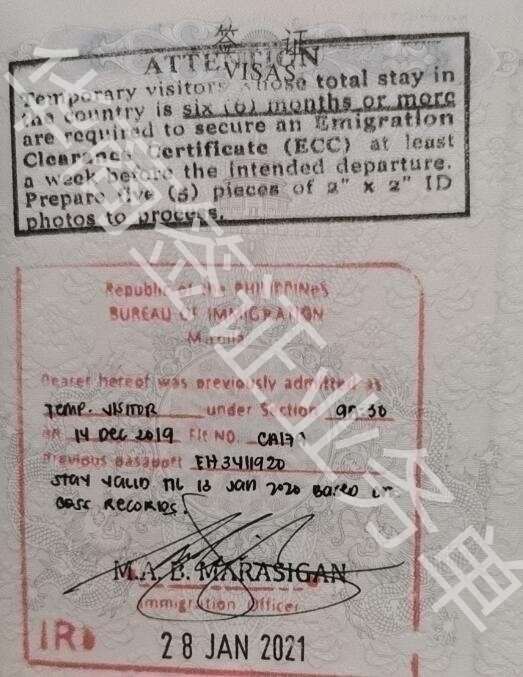 签 证
VISAS
ATTENTION
Temporary visitors whose total stay in
the country is six (6) months or more
are required to secure an Emigration
Clearance Certificate (ECC) at least
a week before the intended departure.
Prepare five (5) pieces of 2" x 2" ID
photos to process.
Republic of the PHILIPPINES
BUREAU OF IMMIGRATION
Manila
Bearer hereof was previously admitted as
TEMP. VISITOR under Section 9A-30
on 14 DEC 2019 Flt NO. CA17
Previous passport EH3411920
STAY VALID TIL 13 JAN 2020 BASED ON
RECORDS.
M.A. B. MARASIGAN
Immigration Officer
IR
28 JAN 2021
签证业务单